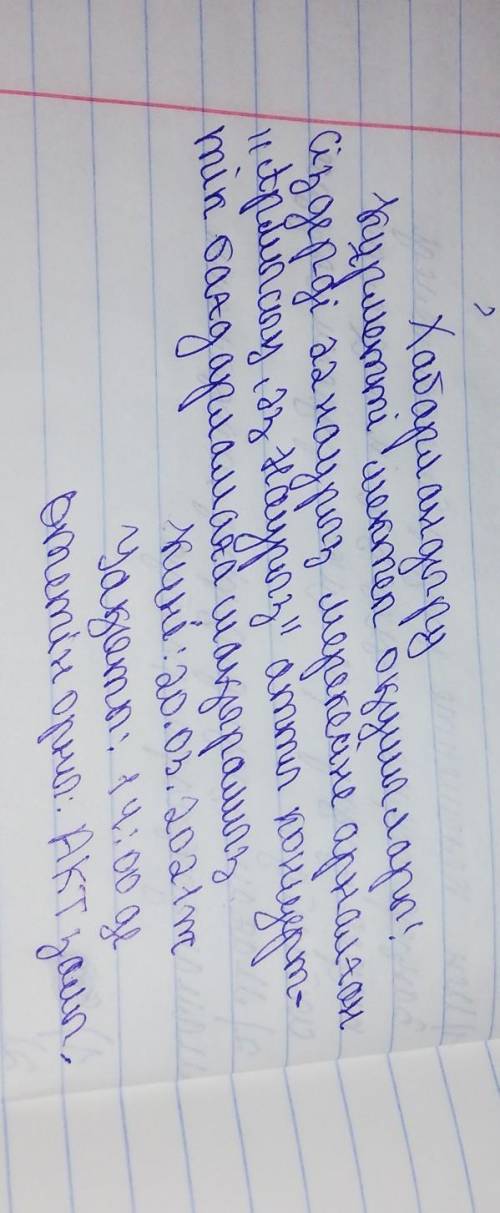 Хабарландыру
Құрметті мектеп оқушылары!
Сіздерді 22 наурыз мерекесіне арналған
"Армысың, әз Наурыз" атты концерт-
тік бағдарламаға шақырамыз
Күні: 20.03.2021 ж
Уақыты: 14:00 де
Өтетін орны: АКТ залы.